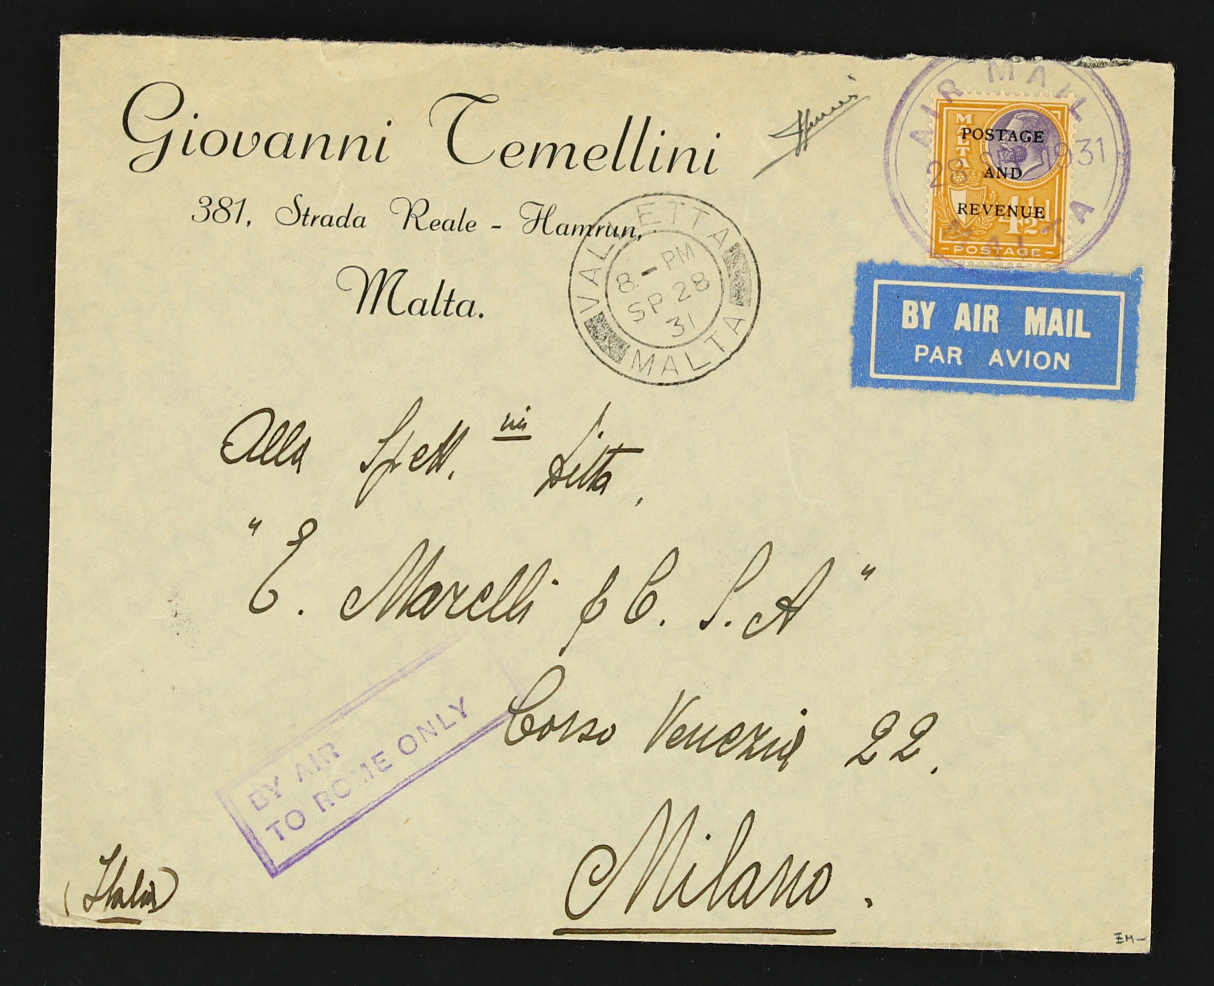 Giovanni Temellini
381, Strada Reale - Hamrun,
Malta.
AIR MAIL
28 SEP 1931
MALTA
MALTA
POSTAGE
AND
REVENUE
4½d
POSTAGE
VALLETTA
8 - PM
SP 28
31
MALTA
BY AIR MAIL
PAR AVION
Alla Spett. Ditta,
"E. Marelli & C. S. A"
Corso Venezia 22.
Milano.
BY AIR
TO ROME ONLY
(Italia)
EM-